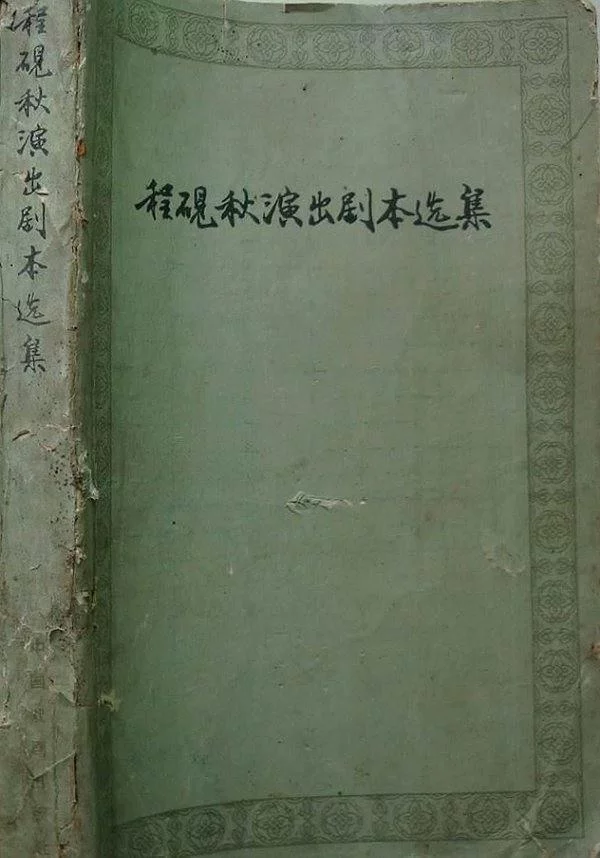 程砚秋演出剧本选集
程砚秋演出剧本选集
中国戏剧